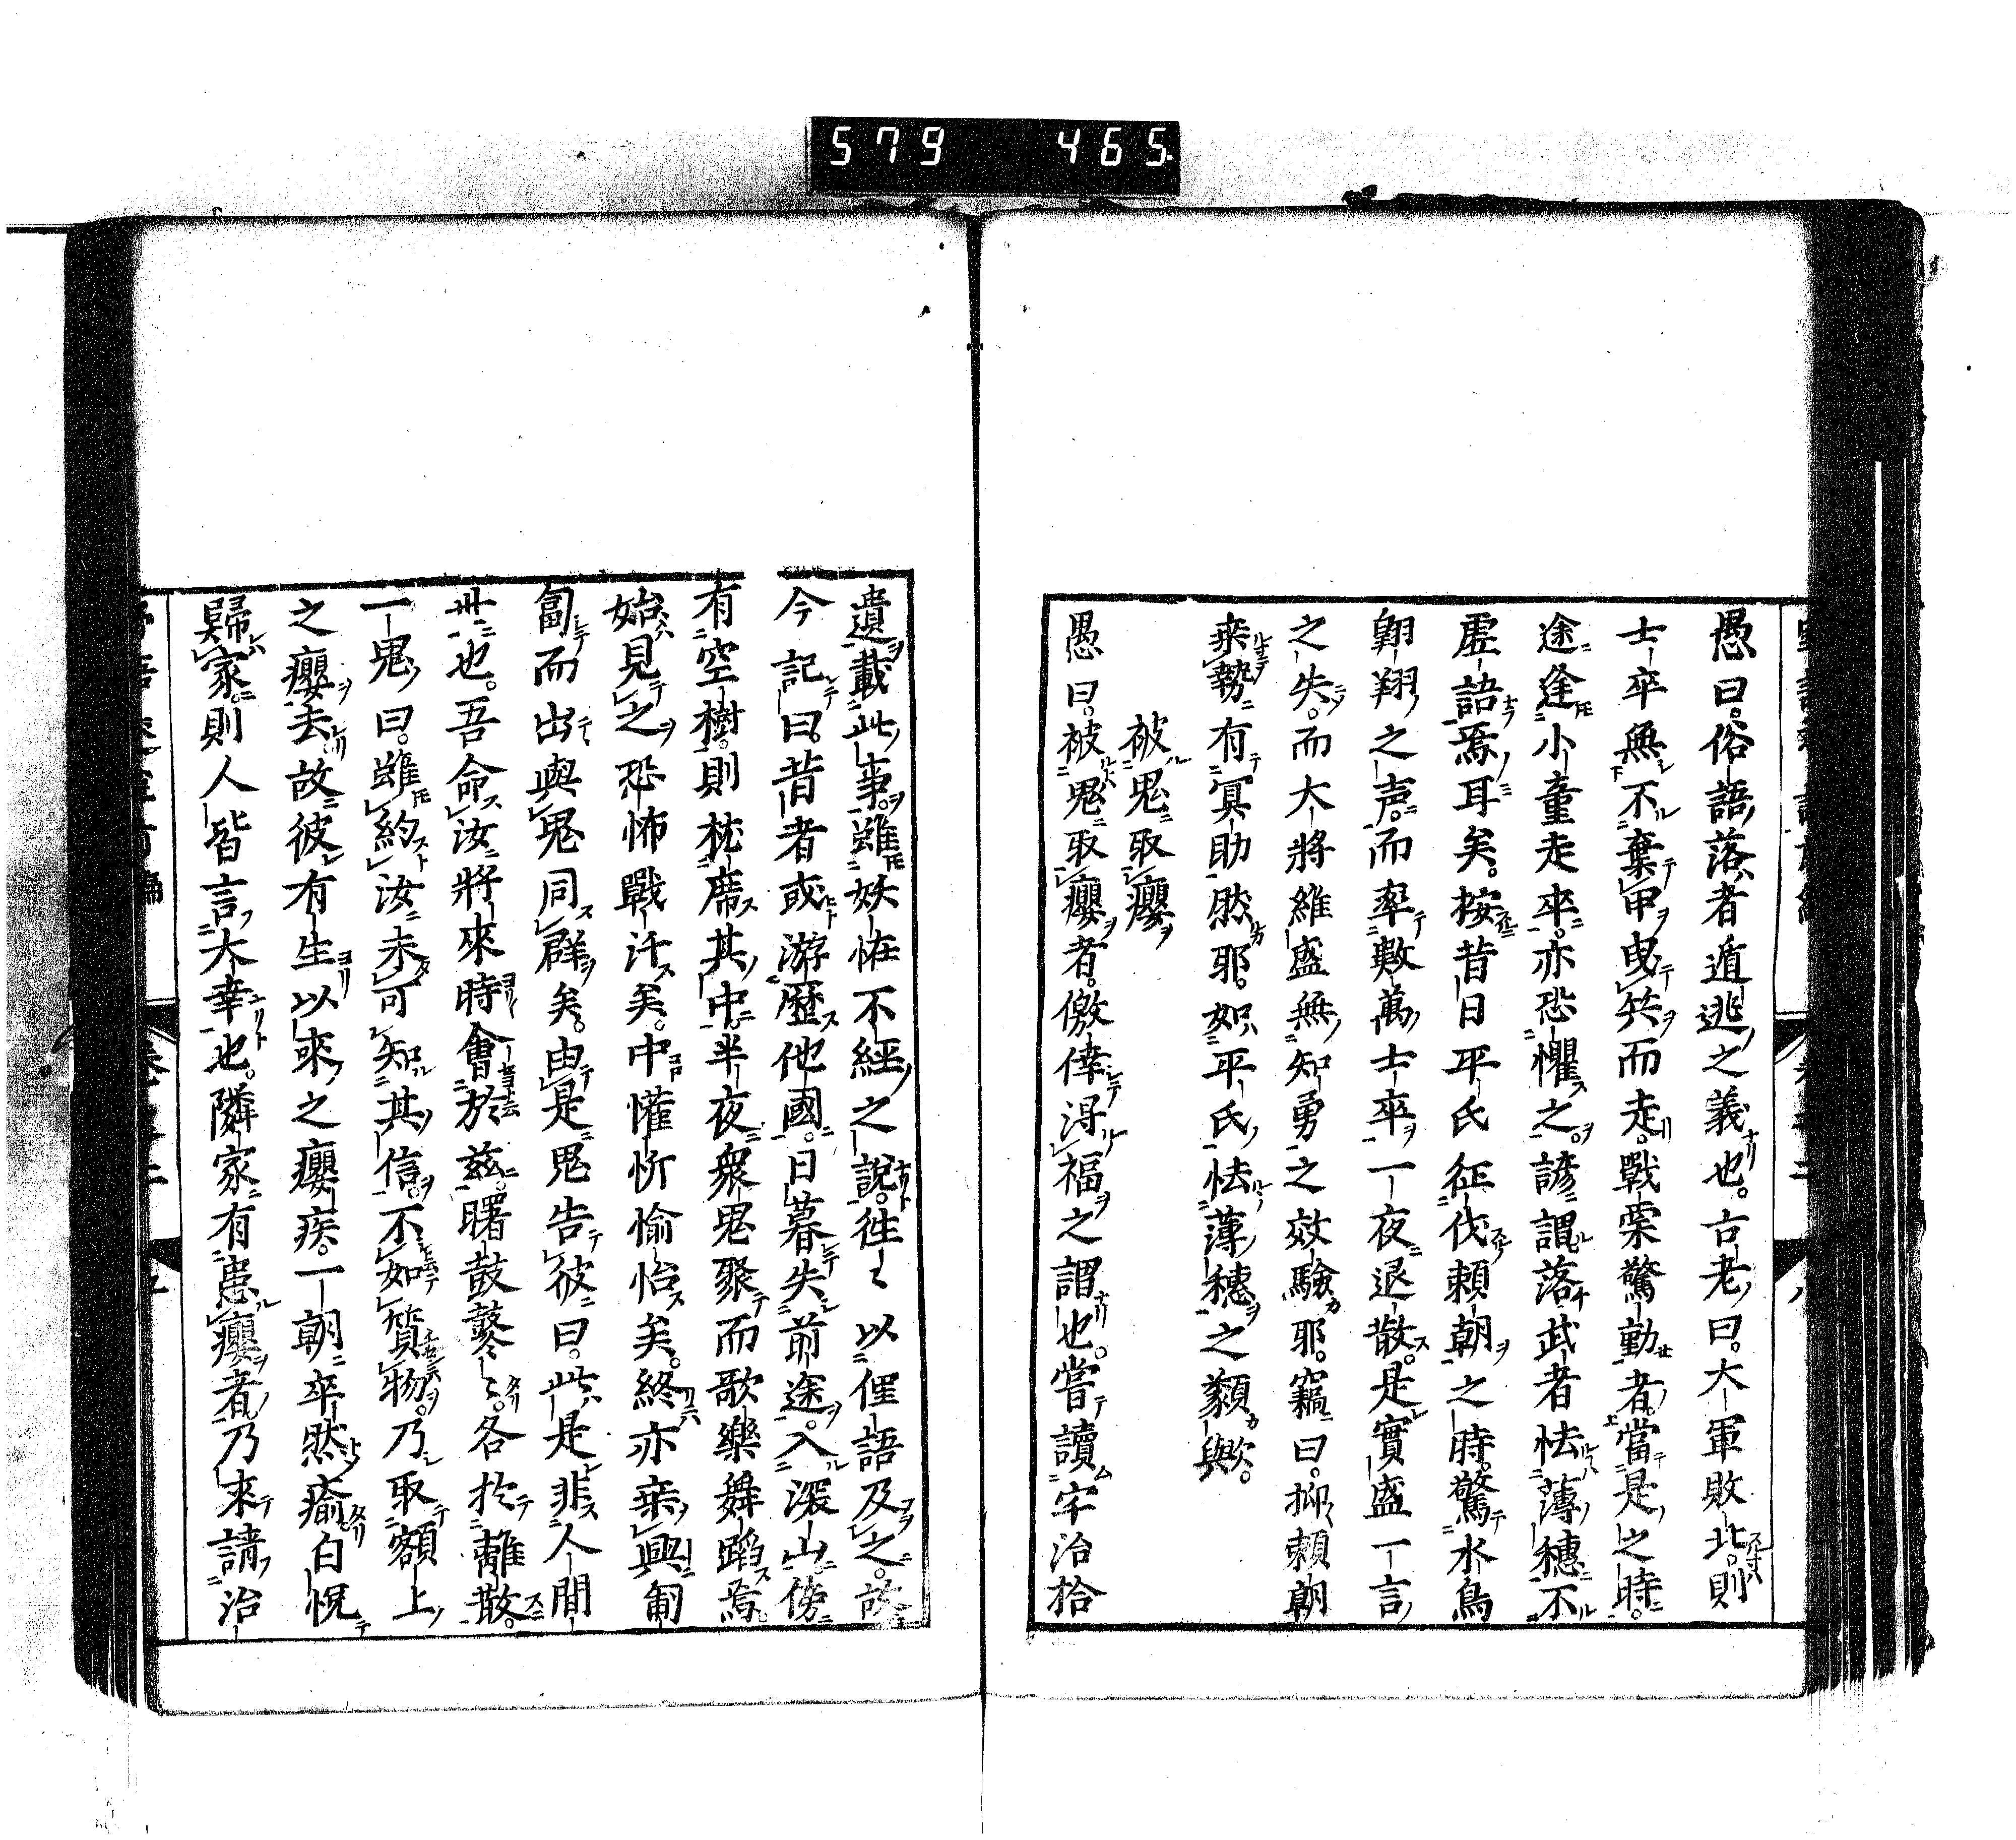 579 465
愚曰。俗語落者遁逃之義也。古老曰。大軍敗北。則
士卒無不棄甲曳兵而走。戰栗驚動者。當是之時。
途逢小童走卒。亦恐懼之。諺謂落武者怯薄穗不
虛語焉耳矣。按昔日平氏征伐賴朝之時。驚水鳥
翱翔之声。而率數萬士卒一夜退散。是實盛一言
之失。而大將維盛無知勇之效驗耶。竊曰。抑賴朝
乗勢有冥助然耶。如平氏怯薄穗之類歟。
被鬼取癭
愚曰。被鬼取癭者。儌倖得福之謂也。嘗讀宇治拾
遺載此事。雖妖怪不經之說。往々以俚語及之。故
今記曰。昔者或游歷他國。日暮失前途。入深山。傍
有空樹。則枕席其中。半夜衆鬼聚而歌樂舞蹈焉。
始見之恐怖戰汗矣。中懽忻愉怡矣。終亦乗興匍
匐而出與鬼同群矣。由是鬼告彼曰。此是非人間
世也。吾命汝將來時會於茲。曙鼓鼕々。各於離散。
一鬼曰。雖約汝未可知其信。不如質物。乃取額上
之癭去。故彼有生以來之癭疾。一朝卒然瘉。白怳
歸家。則人皆言大幸也。隣家有患癭者。乃來請治